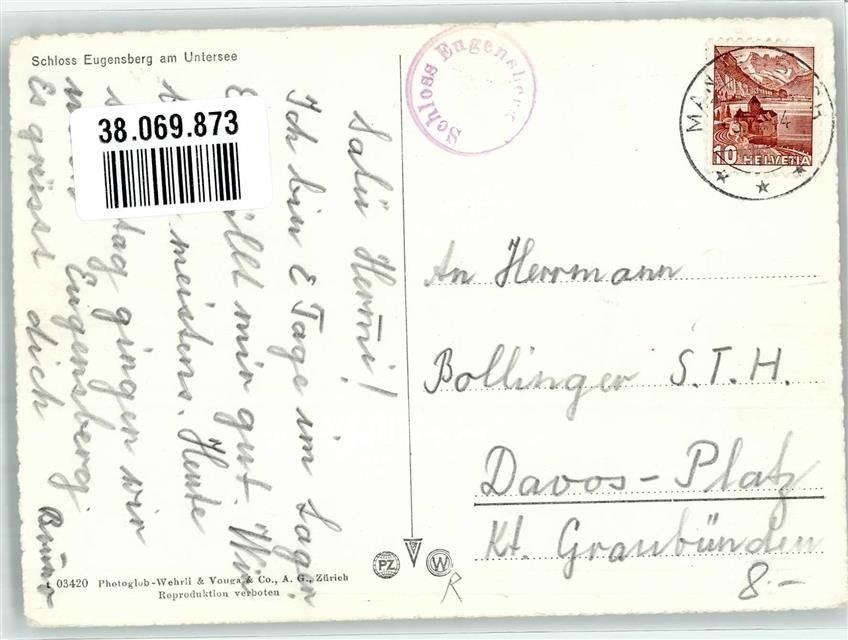 Schloss Eugensberg am Untersee
38.069.873
Salü Hermi!
Ich bin 2 Tage im Lager.
gut. Wir
meistens. Heute
tag gingen wir
Eugensberg.
Es grüsst dich
Bruno
Schloss Eugensberg
10 HELVETIA
An Herrmann
Bollinger S.T.H.
Davos-Platz
Kt. Graubünden
8.-
03420 Photoglob-Wehrli & Vouga & Co., A. G., Zürich
Reproduktion verboten
PZ
W
R